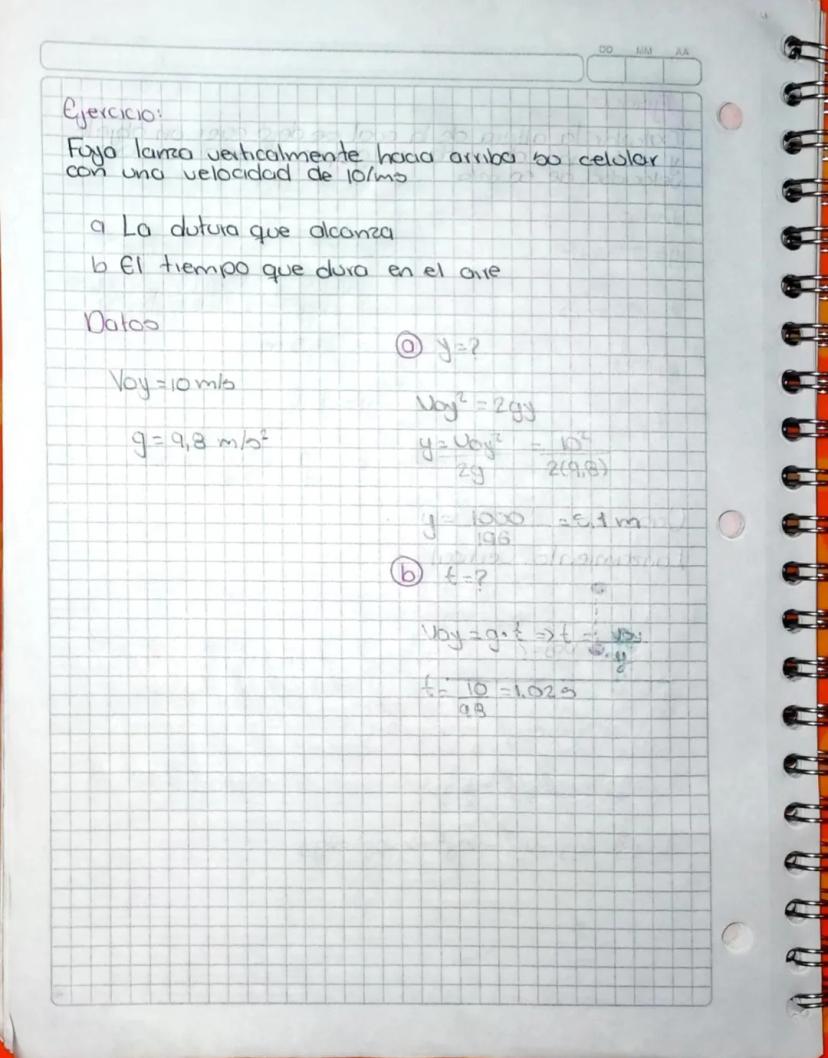 DD MM AA
Ejercicio:
Fuyo lanza verticalmente hacia arriba so celular
con una velocidad de 10/ms
a La dutura que alcanza
b El tiempo que dura en el aire
Datos
Voy = 10 m/s
g = 9,8 m/s²
a y = ?
Voy² = 2gy
y = Voy²/2g = 10²/2(9,8)
y = 1000/196 = 5,1 m
b t = ?
Voy = g · t => t =
t = 10/98 = 1.02 s